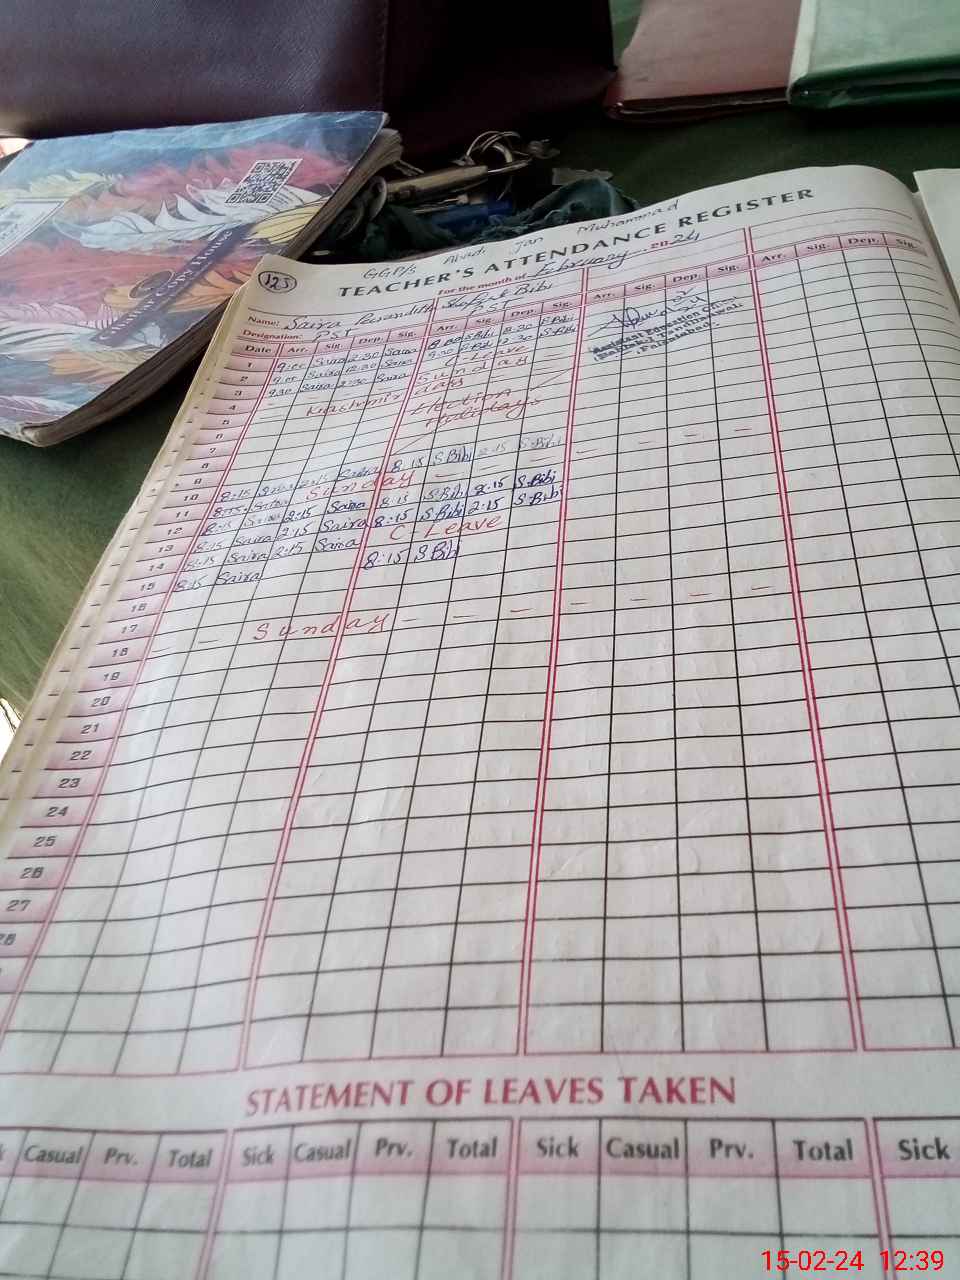 125
GGP/s Abadi Jan Muhammad
TEACHER'S ATTENDANCE REGISTER
For the month of February 2024
Name: Saira Bibi
Designation: PST PST
Date Arr. Sig. Dep. Sig. Arr. Sig. Dep. Sig. Arr. Sig. Dep. Sig. Arr. Sig. Dep. Sig.
1 9:00 Saira 2:30 Saira S.Bibi 2:30 S.Bibi
2 9:00 Saira 12:30 Saira 9:30 S.Bibi 12:30 S.Bibi
3 9:30 Saira 2:30 Saira C-Leave
4 Sunday
5 Kashmir day
6 Election
7 Holidays
8
9
10 8:15 Saira 2:15 Saira 8:15 S.Bibi 2:15 S.Bibi
11 Sunday
12 8:15 Saira 2:15 Saira 8:15 S.Bibi 2:15 S.Bibi
13 8:15 Saira 2:15 Saira 8:15 S.Bibi 2:15 S.Bibi
14 8:15 Saira 2:15 Saira C-Leave
15 8:15 Saira 8:15 S.Bibi
16
17
18 Sunday
19
20
21
22
23
24
25
26
27
28
Assistant Education Officer
Faisalabad.
STATEMENT OF LEAVES TAKEN
Casual Prv. Total Sick Casual Prv. Total Sick Casual Prv. Total Sick
15-02-24 12:39